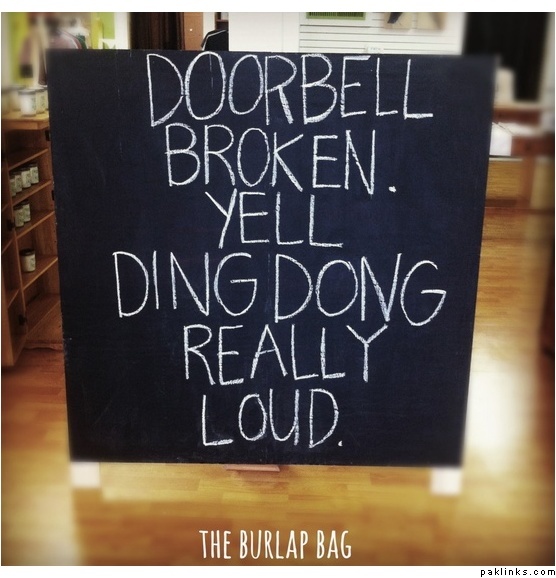 DOORBELL
BROKEN.
YELL
DING DONG
REALLY
LOUD.
THE BURLAP BAG
paklinks.com